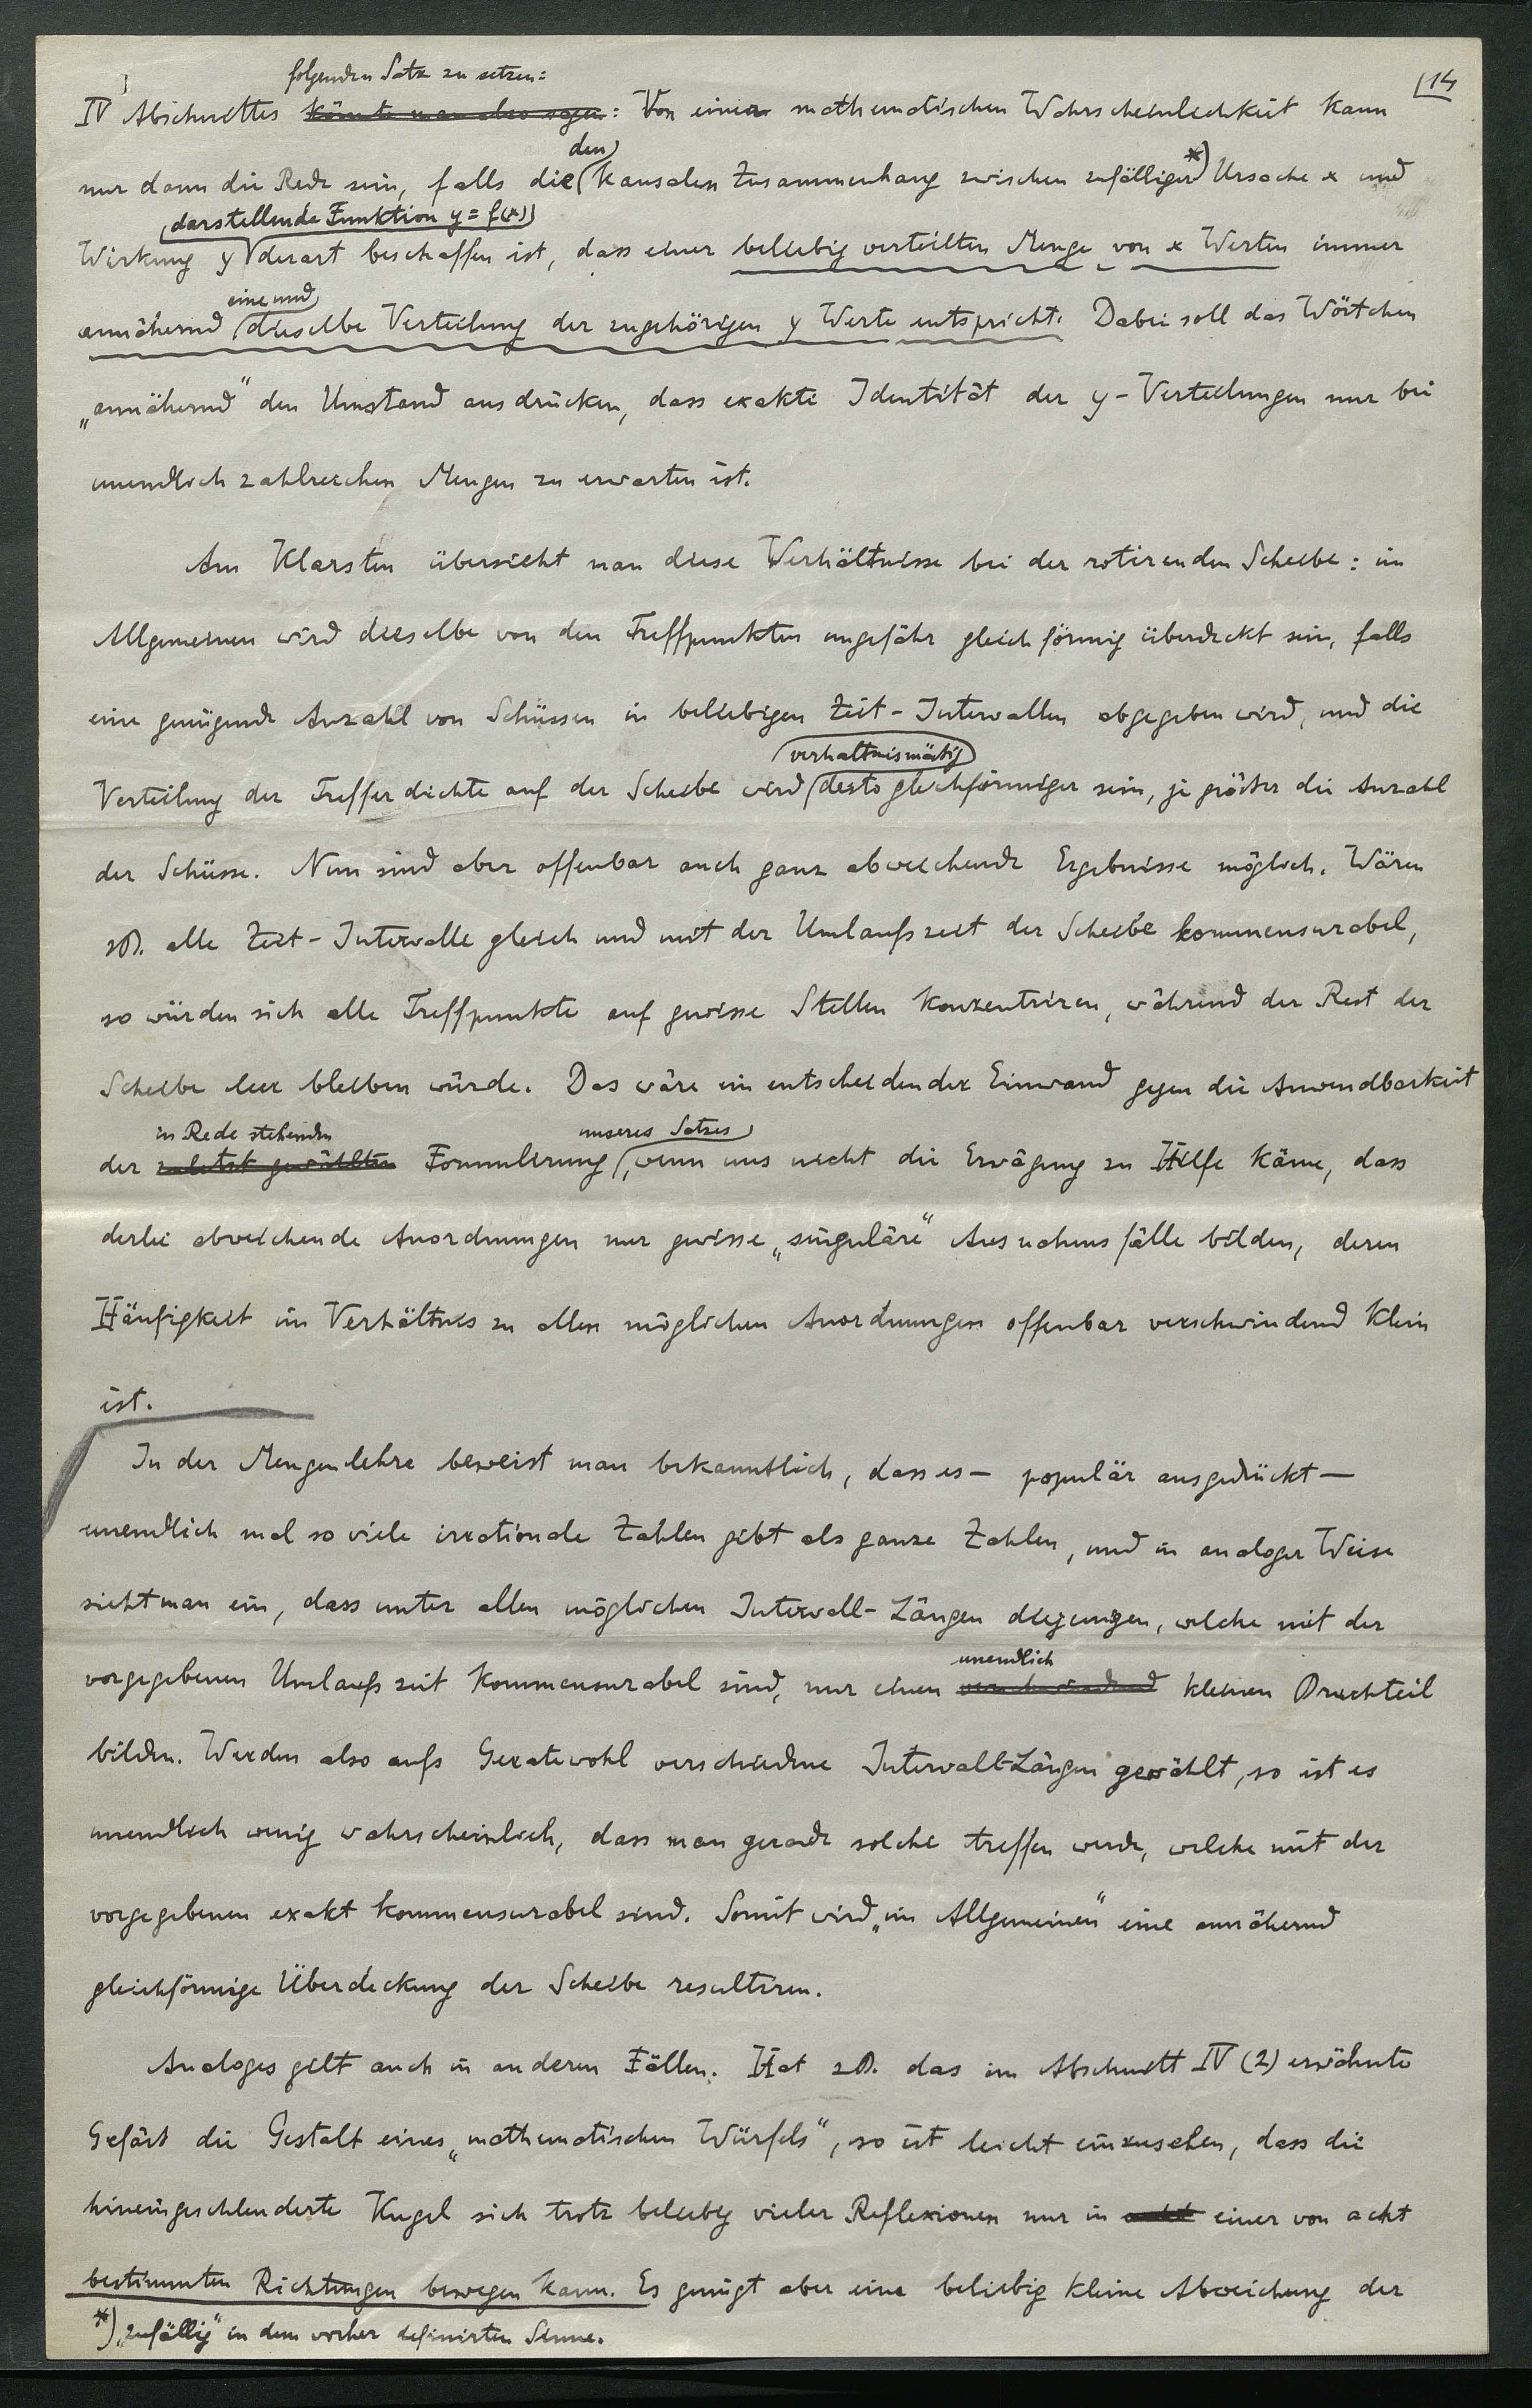 14
folgenden Satz zu setzen:
IV Abschnittes könnte man also sagen: Von einer mathematischen Wahrscheinlichkeit kann
den
nur dann die Rede sein, falls die kausalen Zusammenhang zwischen zufälliger *) Ursache x und
darstellende Funktion y = f(x)
Wirkung y derart beschaffen ist, dass einer beliebig verteilten Menge von x Werten immer
eine und
annähernd dieselbe Verteilung der zugehörigen y Werte entspricht. Dabei soll das Wörtchen
„annähernd" den Umstand ausdrücken, dass exakte Identität der y-Verteilungen nur bei
unendlich zahlreichen Mengen zu erwarten ist.
Am Klarsten übersieht man diese Verhältnisse bei der rotirenden Scheibe: im
Allgemeinen wird dieselbe von den Treffpunkten ungefähr gleichförmig überdeckt sein, falls
eine genügende Anzahl von Schüssen in beliebigen Zeit-Intervallen abgegeben wird, und die
verhältnismäßig
Verteilung der Trefferdichte auf der Scheibe wird desto gleichförmiger sein, je größer die Anzahl
der Schüsse. Nun sind aber offenbar auch ganz abweichende Ergebnisse möglich. Wären
zB. alle Zeit-Intervalle gleich und mit der Umlaufszeit der Scheibe kommensurabel,
so würden sich alle Treffpunkte auf gewisse Stellen konzentriren, während der Rest der
Scheibe leer bleiben würde. Das wäre ein entscheidender Einwand gegen die Anwendbarkeit
in Rede stehenden unseres Satzes
der zuletzt gewählten Formulirung, wenn uns nicht die Erwägung zu Hilfe käme, dass
derlei abweichende Anordnungen nur gewisse „singuläre" Ausnahmsfälle bilden, deren
Häufigkeit im Verhältnis zu allen möglichen Anordnungen offenbar verschwindend klein
ist.
In der Mengenlehre beweist man bekanntlich, dass es – populär ausgedrückt –
unendlich mal so viele irrationale Zahlen gibt als ganze Zahlen, und in analoger Weise
sieht man ein, dass unter allen möglichen Intervall-Längen diejenigen, welche mit der
unendlich
vorgegebenen Umlaufszeit kommensurabel sind, nur einen verschwindend kleinen Bruchteil
bilden. Werden also aufs Geratewohl verschiedene Intervall-Längen gewählt, so ist es
unendlich wenig wahrscheinlich, dass man gerade solche treffen werde, welche mit der
vorgegebenen exakt kommensurabel sind. Somit wird „im Allgemeinen" eine annähernd
gleichförmige Überdeckung der Scheibe resultiren.
Analoges gilt auch in anderen Fällen. Hat zB. das im Abschnitt IV (2) erwähnte
Gefäss die Gestalt eines „mathematischen Würfels", so ist leicht einzusehen, dass die
hineingeschleuderte Kugel sich trotz beliebig vieler Reflexionen nur in acht einer von acht
bestimmten Richtungen bewegen kann. Es genügt aber eine beliebig kleine Abweichung der
*) „zufällig" in dem vorher definirten Sinne.